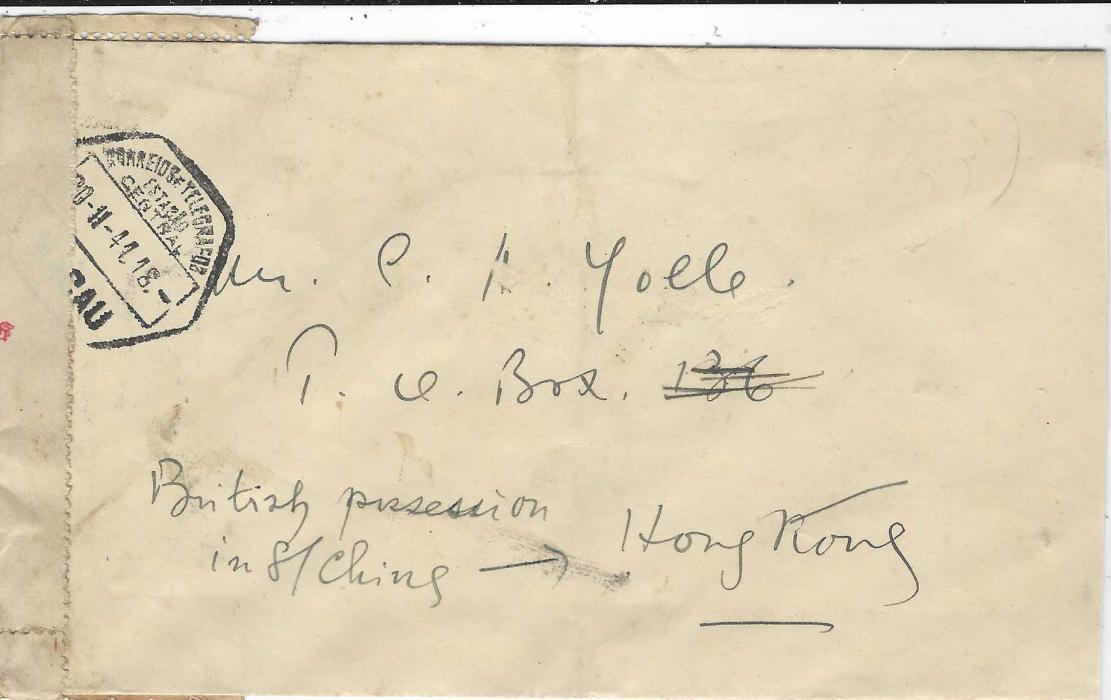 CORREIOS E TELEGRAFOS
ESTAÇÃO
CENTRAL
20-11-41.18.-
CAU
Mr. C. A. Yolle.
P. O. Box. 136
British possession
in S/China → Hong Kong